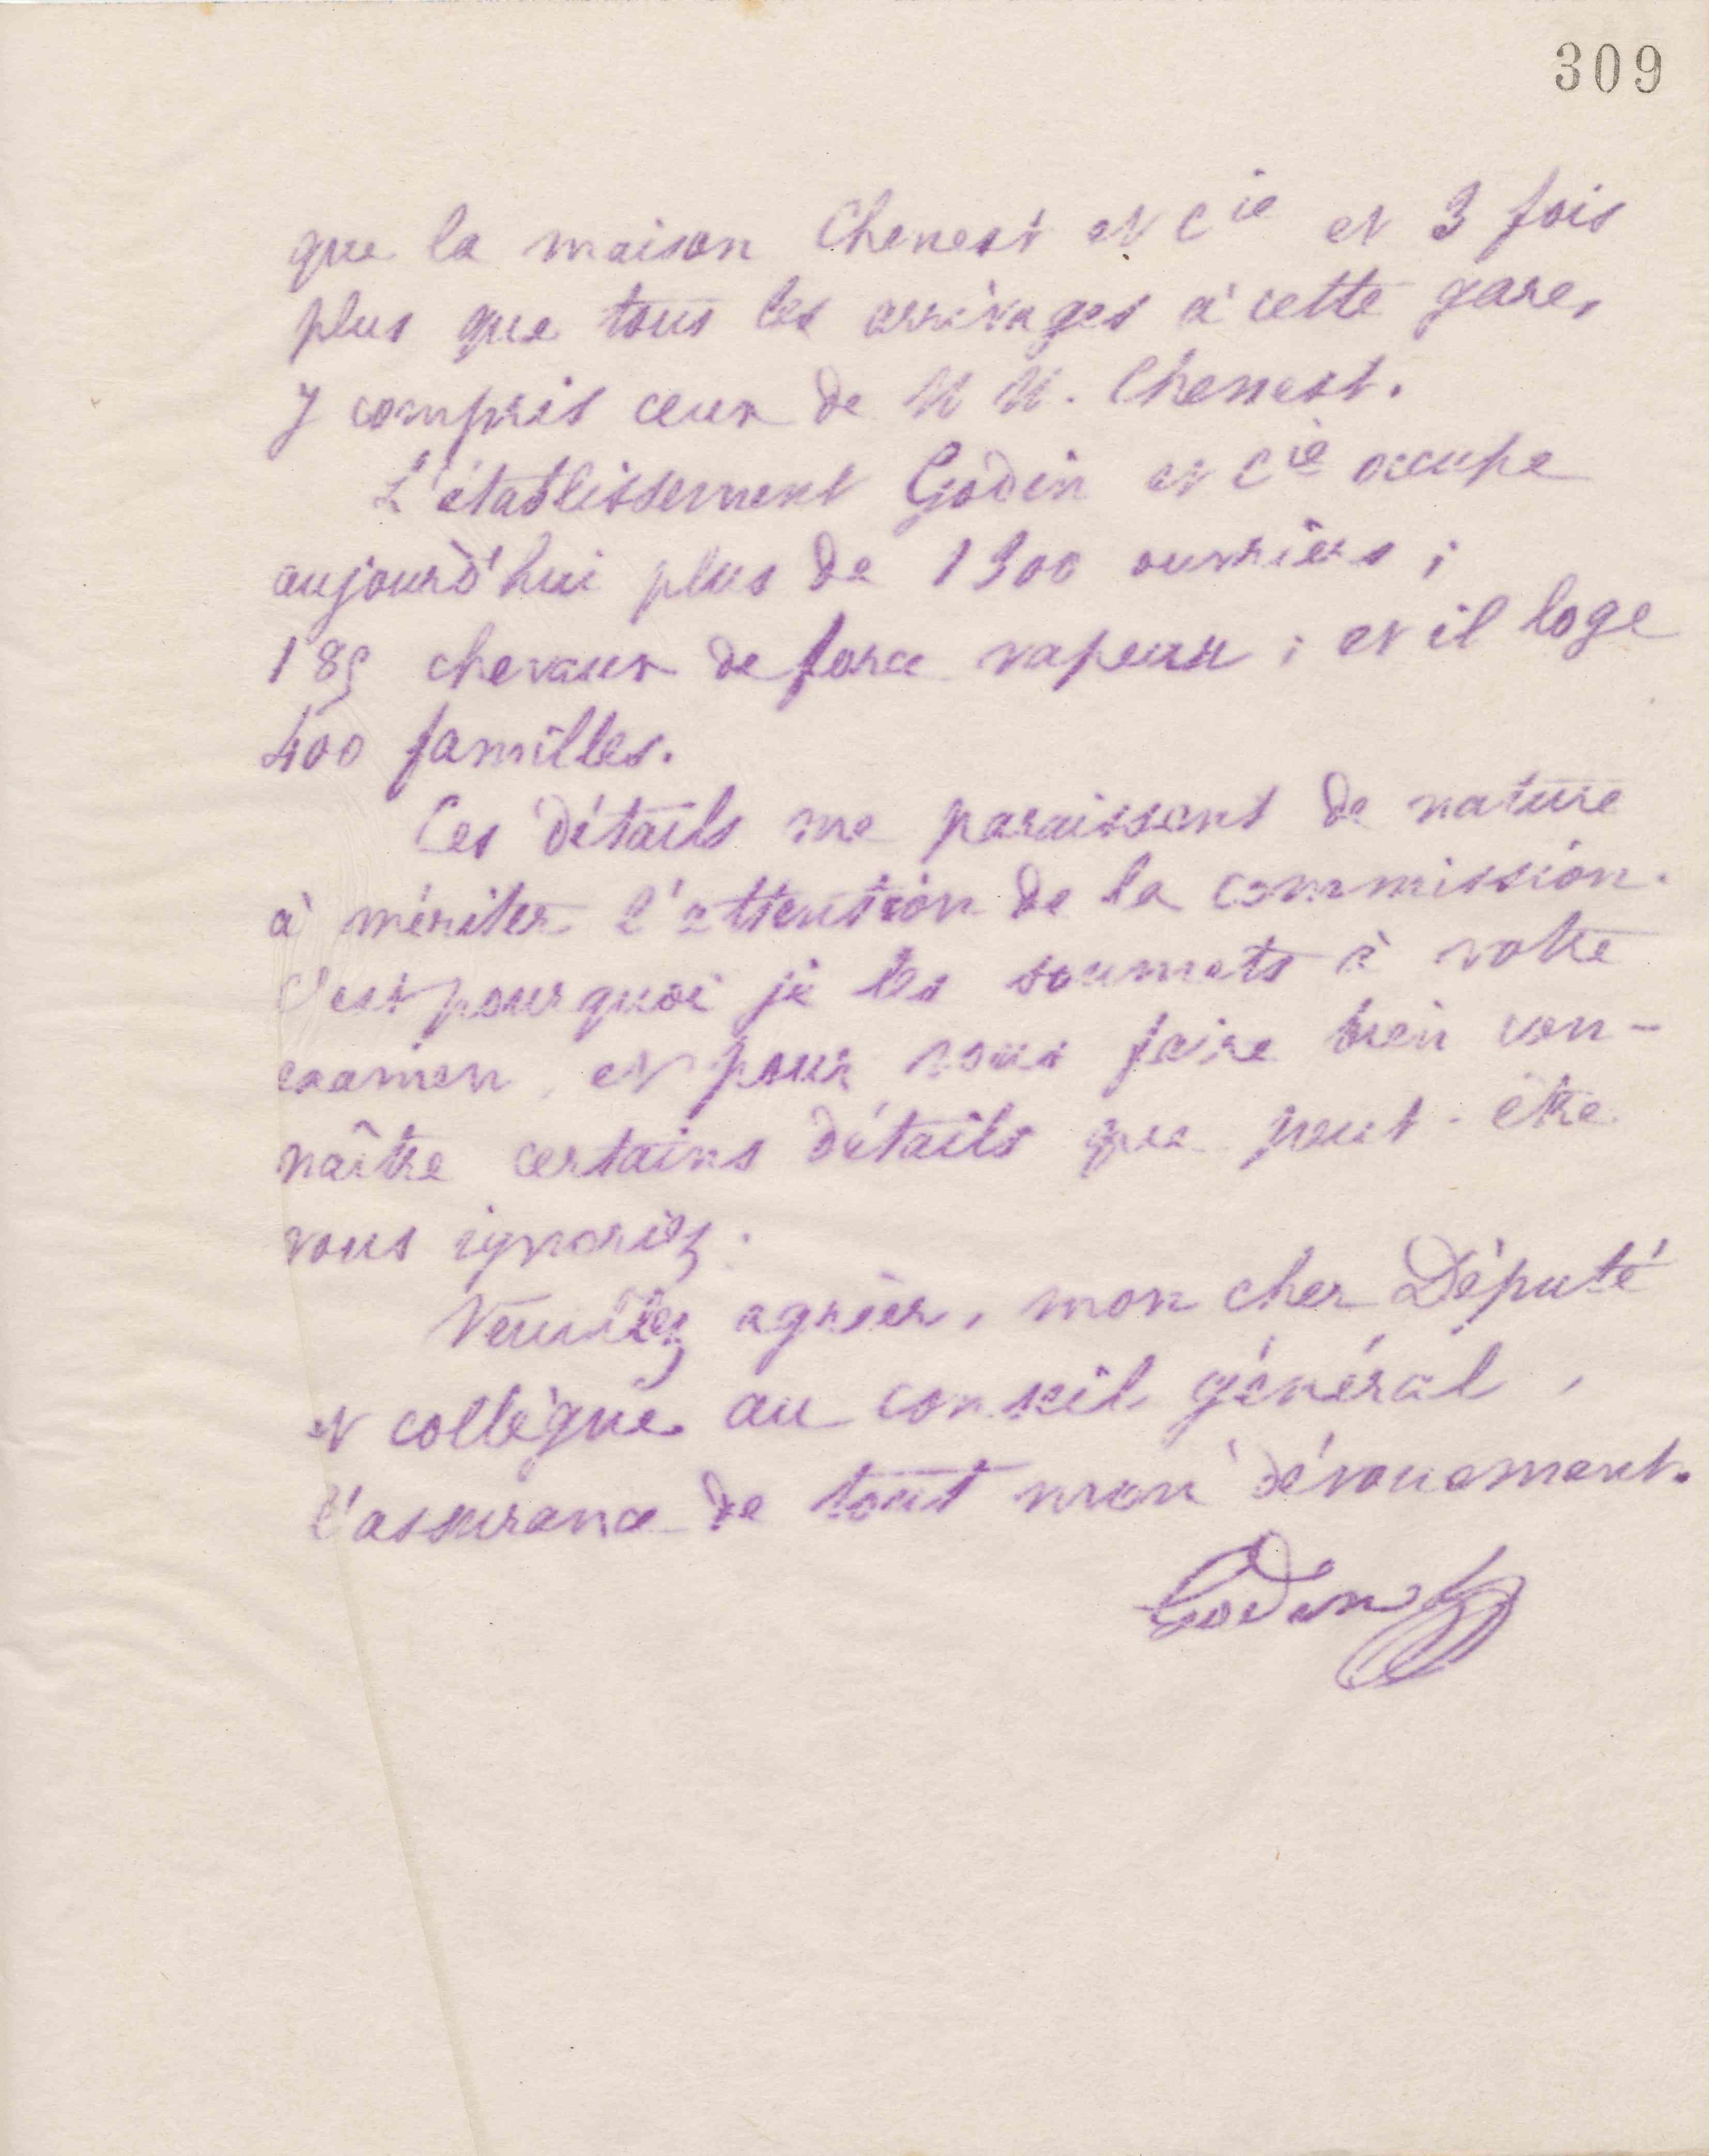 309
que la maison Chenest et Cie et 3 fois
plus que tous les arrivages à cette gare,
y compris ceux de MM. Chenest.
L'établissement Godin et Cie occupe
aujourd'hui plus de 1300 ouvriers ;
185 chevaux de force vapeur ; et il loge
400 familles.
Ces détails me paraissent de nature
à mériter l'attention de la commission.
C'est pourquoi je les soumets à votre
examen et pour vous faire bien con-
naître certains détails que peut-être
vous ignoriez.
Veuillez agréer, mon cher Député
et collègue au conseil général,
l'assurance de tout mon dévouement.
Godin